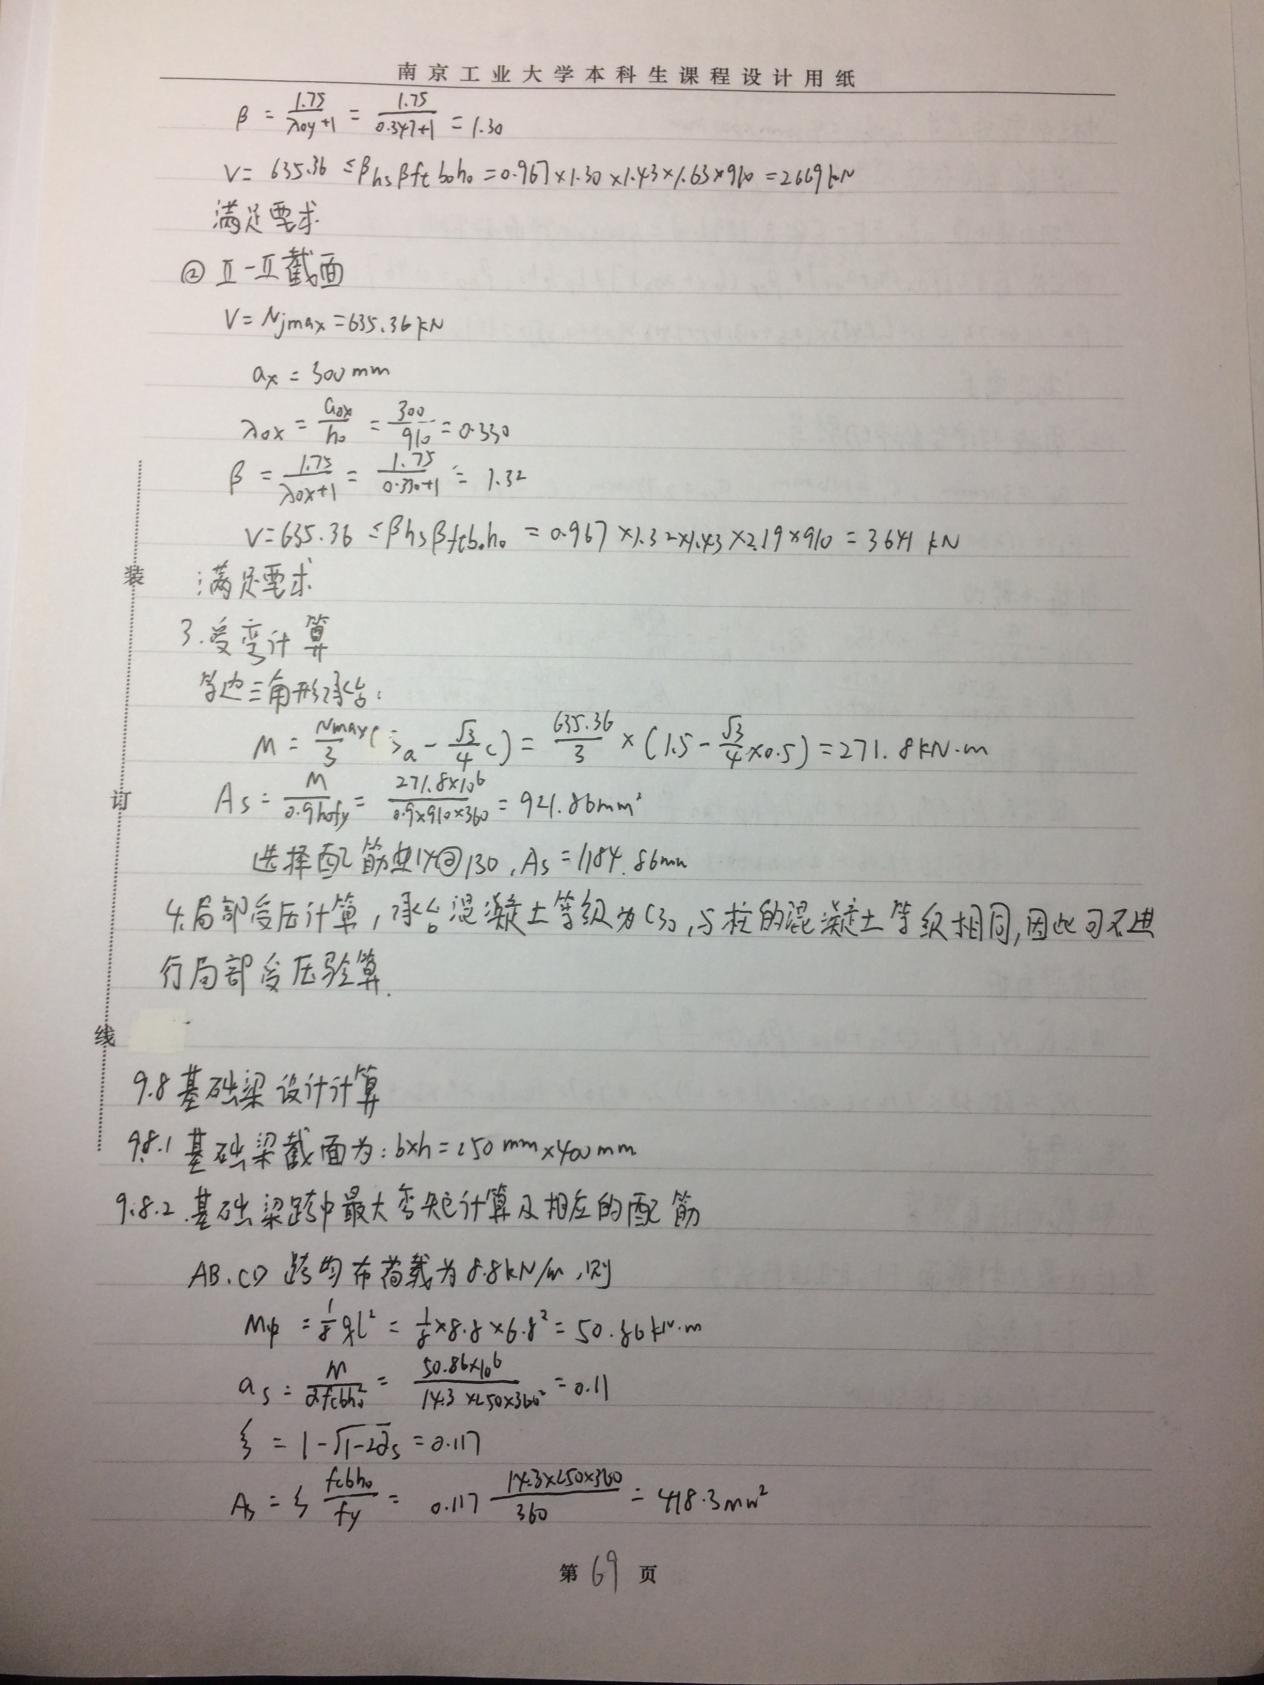 南京工业大学本科生课程设计用纸
β = 1.75/(λoy+1) = 1.75/(0.347+1) = 1.30
V = 635.36 ≤ βhsβft boho = 0.967×1.30×1.43×1.63×910 = 2669kN
满足要求
② Ⅱ-Ⅱ截面
V = Njmax = 635.36kN
ax = 300mm
λox = aox/ho = 300/910 = 0.330
β = 1.75/(λox+1) = 1.75/(0.330+1) = 1.32
V=635.36 ≤ βhsβftboho = 0.967×1.32×1.43×2.19×910 = 3641 kN
满足要求
3.受弯计算
等边三角形承台:
M = Nmax/3 (Sa - √3/4 c) = 635.36/3 × (1.5 - √3/4×0.5) = 271.8kN·m
As = M/(0.9hofy) = 271.8×10⁶/(0.9×910×360) = 921.86mm²
选择配筋14@130,As=1184.86mm
4.局部受压计算,承台混凝土等级为C30,与柱的混凝土等级相同,因此可不进
行局部受压验算.
9.8基础梁设计计算
9.8.1 基础梁截面为:b×h=250mm×400mm
9.8.2.基础梁跨中最大弯矩计算及相应的配筋
AB.CD 跨均布荷载为8.8kN/m,则
M中 = 1/8 ql² = 1/8×8.8×6.8² = 50.86kN·m
as = M/(αfcbho²) = 50.86×10⁶/(14.3×250×360²) = 0.11
ξ = 1-√(1-2as) = 0.117
As = ξ fcbho/fy = 0.117 14.3×250×360/360 = 418.3mm²
第69页
装
订
线